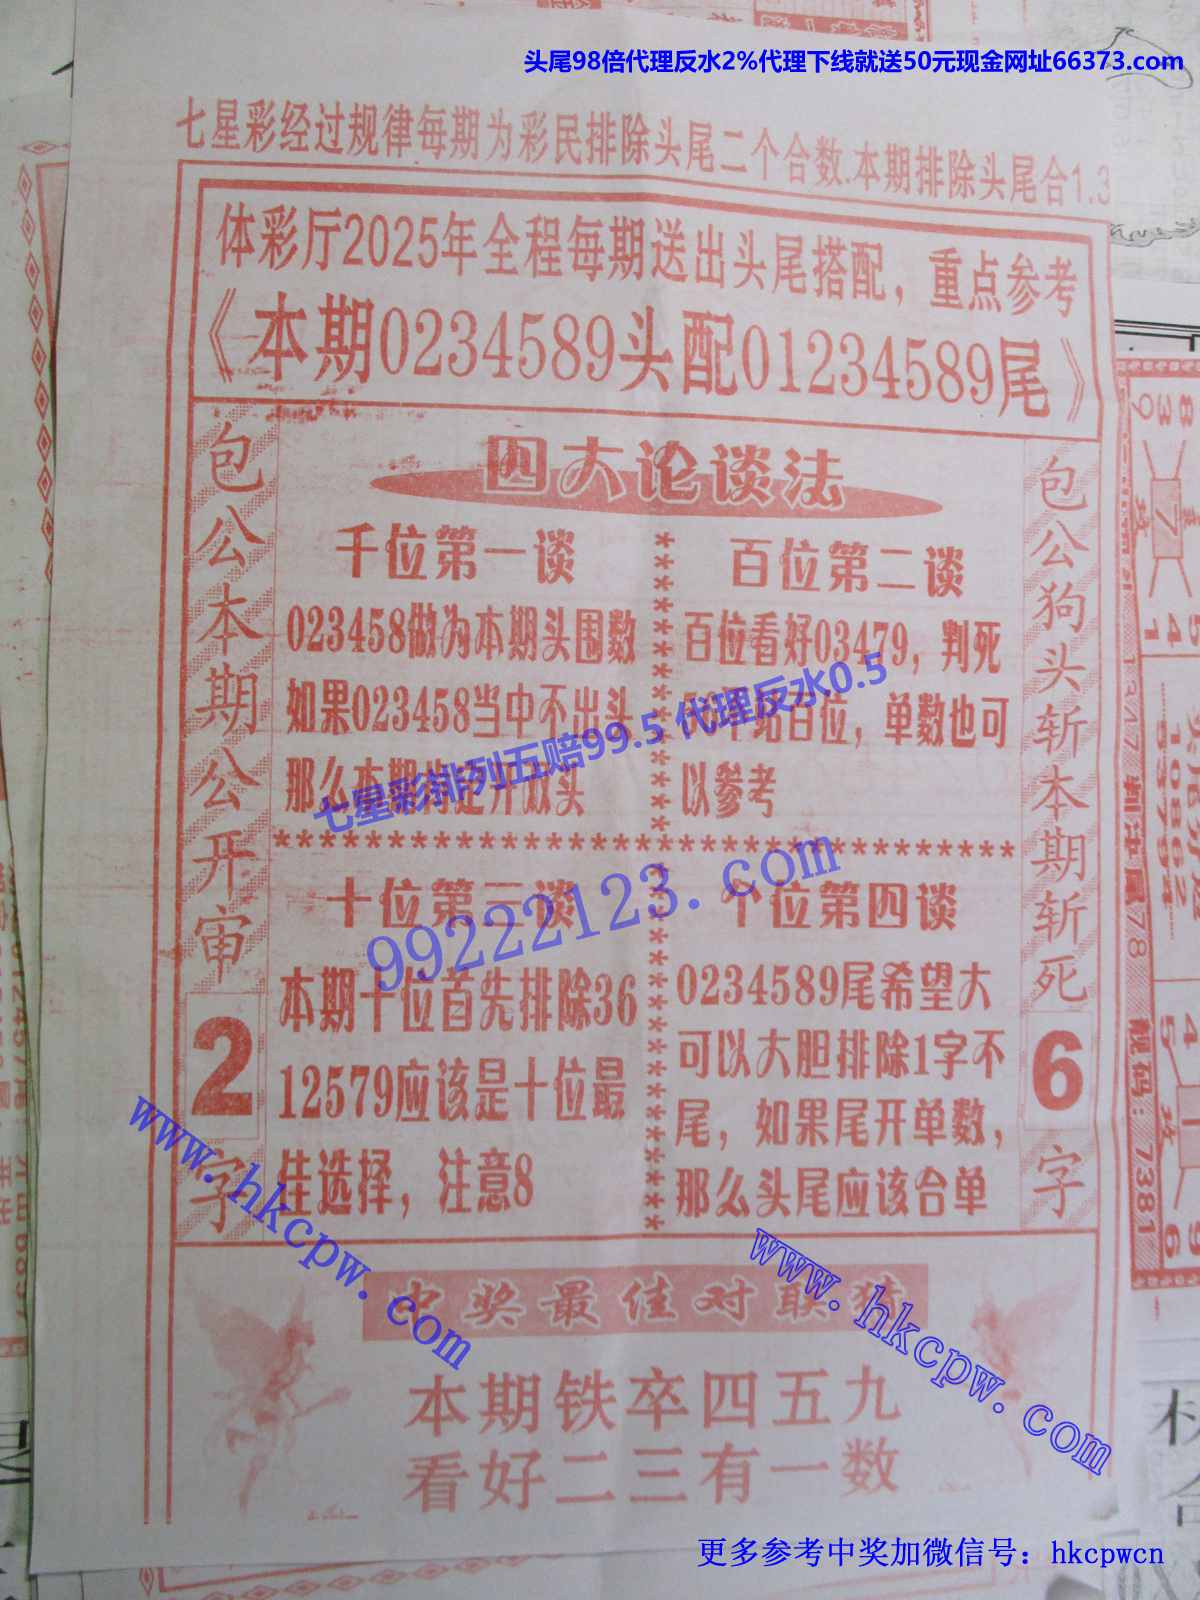 头尾98倍代理反水2%代理下线就送50元现金网址66373.com
七星彩经过规律每期为彩民排除头尾二个合数.本期排除头尾合1.3
体彩厅2025年全程每期送出头尾搭配，重点参考
《本期0234589头配01234589尾》
包公本期公开审
2
字
四大论谈法
千位第一谈
023458做为本期头围数
如果023458当中不出头
那么本期肯定开双头
百位第二谈
百位看好03479，判死
站百位，单数也可
以参考
十位第三谈
本期十位首先排除36
12579应该是十位最
佳选择，注意8
个位第四谈
0234589尾希望大
可以大胆排除1字不
尾，如果尾开单数，
那么头尾应该合单
包公狗头斩本期斩死
6
字
七星彩排列五赔99.5 代理反水0.5
99222123.com
www.hkcpw.com
www.hkcpw.com
中奖最佳对联猜
本期铁卒四五九
看好二三有一数
更多参考中奖加微信号：hkcpwcn